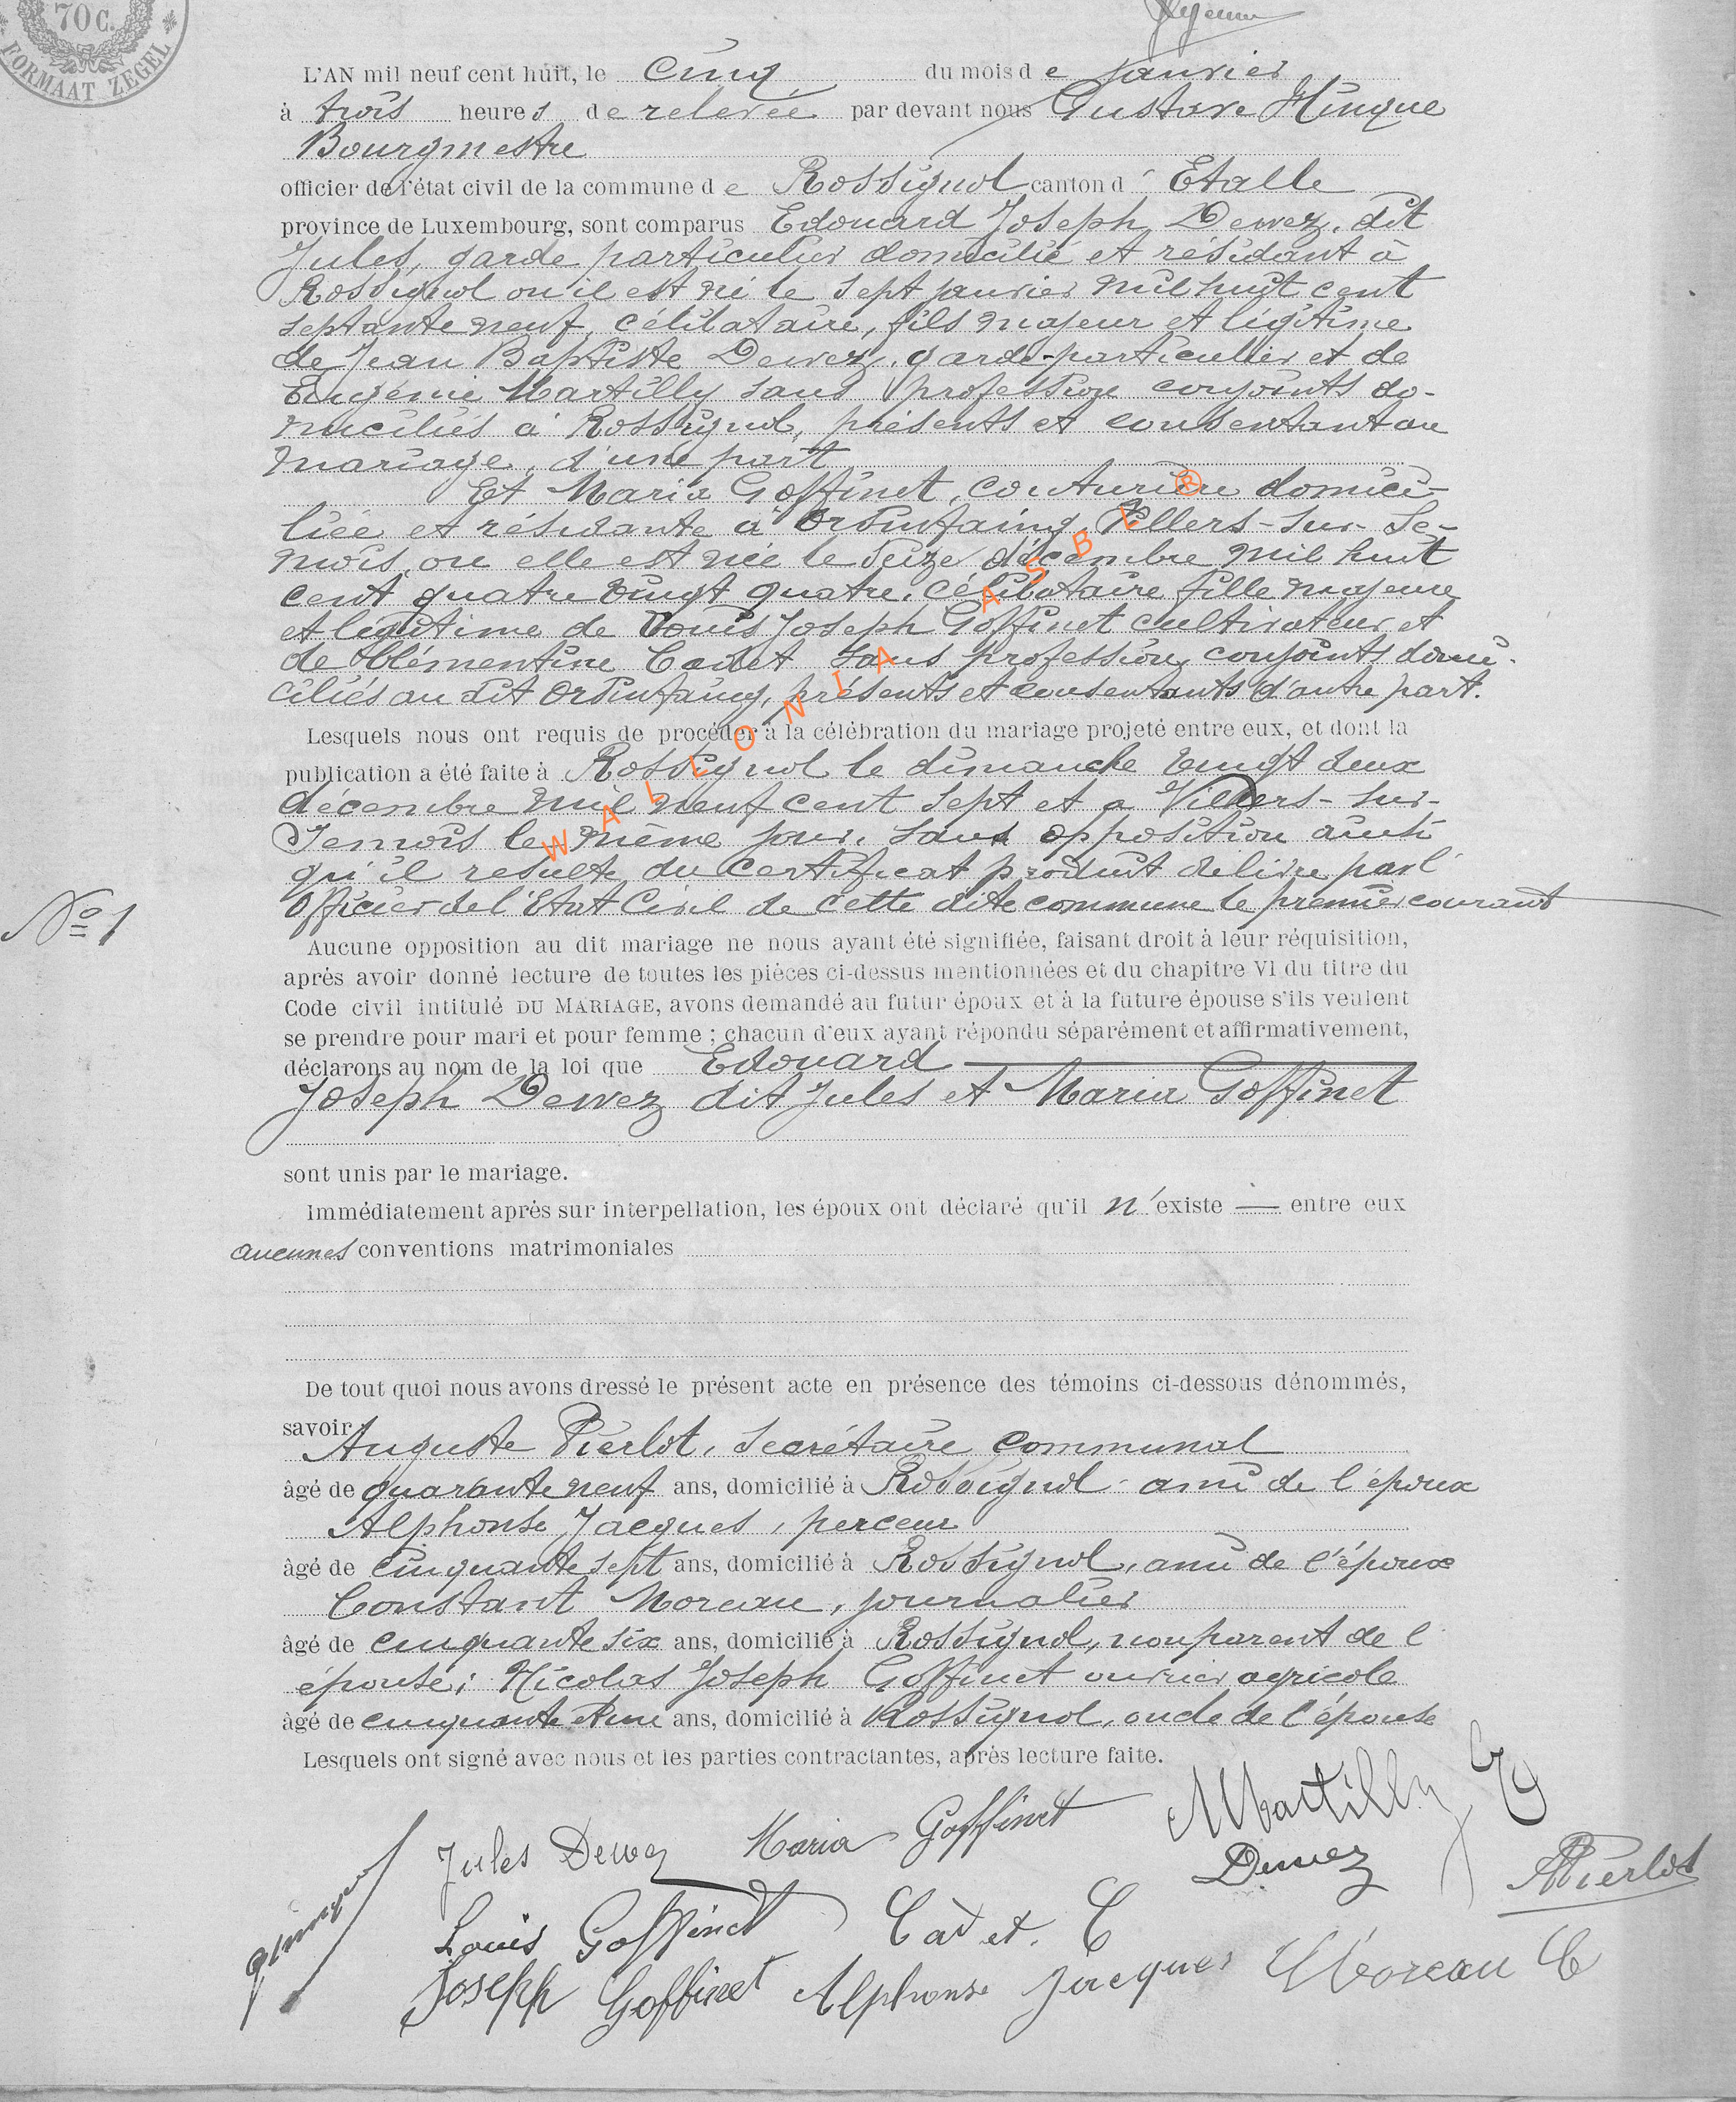 70 C.
FORMAAT ZEGEL
L'AN mil neuf cent huit, le cinq du mois de janvier
à trois heures de relevée par devant nous Gustave Hinque
Bourgmestre
officier de l'état civil de la commune de Rossignol canton d'Etalle
province de Luxembourg, sont comparus Edouard Joseph Dewez, dit
Jules, garde particulier domicilié et résidant à
Rossignol ou il est né le sept janvier mil huit cent
septante neuf, célibataire, fils majeur et légitime
de Jean Baptiste Dewez, garde-particulier et de
Eugénie Martilly sans profession conjoints do-
miciliés à Rossignol, présents et consentant au
mariage, d'une part
Et Maria Goffinet, couturière domici-
liée et résidante à Orsinfaing, Villers-sur-Se-
mois, ou elle est née le seize décembre mil huit
cent quatre vingt quatre, célibataire fille majeure
et légitime de Louis Joseph Goffinet cultivateur et
de Clémentine Cadet sans profession, conjoints domi-
ciliés au dit Orsinfaing, présents et consentants d'autre part.
WALLONIA ASBL ®
Lesquels nous ont requis de procéder à la célébration du mariage projeté entre eux, et dont la
publication a été faite à Rossignol le dimanche vingt deux
décembre mil neuf cent sept et a Villers-sur-
Semois le même jour, sans opposition ainsi
qu'il resulte du certificat produit délivré par l'
Officier de l'Etat Civil de cette dite commune le premier courant
N° 1
Aucune opposition au dit mariage ne nous ayant été signifiée, faisant droit à leur réquisition,
après avoir donné lecture de toutes les pièces ci-dessus mentionnées et du chapitre VI du titre du
Code civil intitulé DU MARIAGE, avons demandé au futur époux et à la future épouse s'ils veulent
se prendre pour mari et pour femme ; chacun d'eux ayant répondu séparément et affirmativement,
déclarons au nom de la loi que Edouard
Joseph Dewez dit Jules et Maria Goffinet
sont unis par le mariage.
Immédiatement après sur interpellation, les époux ont déclaré qu'il n'existe — entre eux
aucunes conventions matrimoniales
De tout quoi nous avons dressé le présent acte en présence des témoins ci-dessous dénommés,
savoir
Auguste Pierlot, secrétaire communal
âgé de quarante neuf ans, domicilié à Rossignol ami de l'époux
Alphonse Jacques, perceur
âgé de cinquante sept ans, domicilié à Rossignol, ami de l'époux
Constant Moreau, journalier
âgé de cinquante six ans, domicilié à Rossignol, non parent de l'
épouse; Nicolas Joseph Goffinet ouvrier agricole
âgé de cinquante et un ans, domicilié à Rossignol, oncle de l'épouse
Lesquels ont signé avec nous et les parties contractantes, après lecture faite.
Jules Dewez Maria Goffinet Martilly
Dewez APierlot
Louis Goffinet Cadet. C
Joseph Goffinet Alphonse Jacques Moreau C